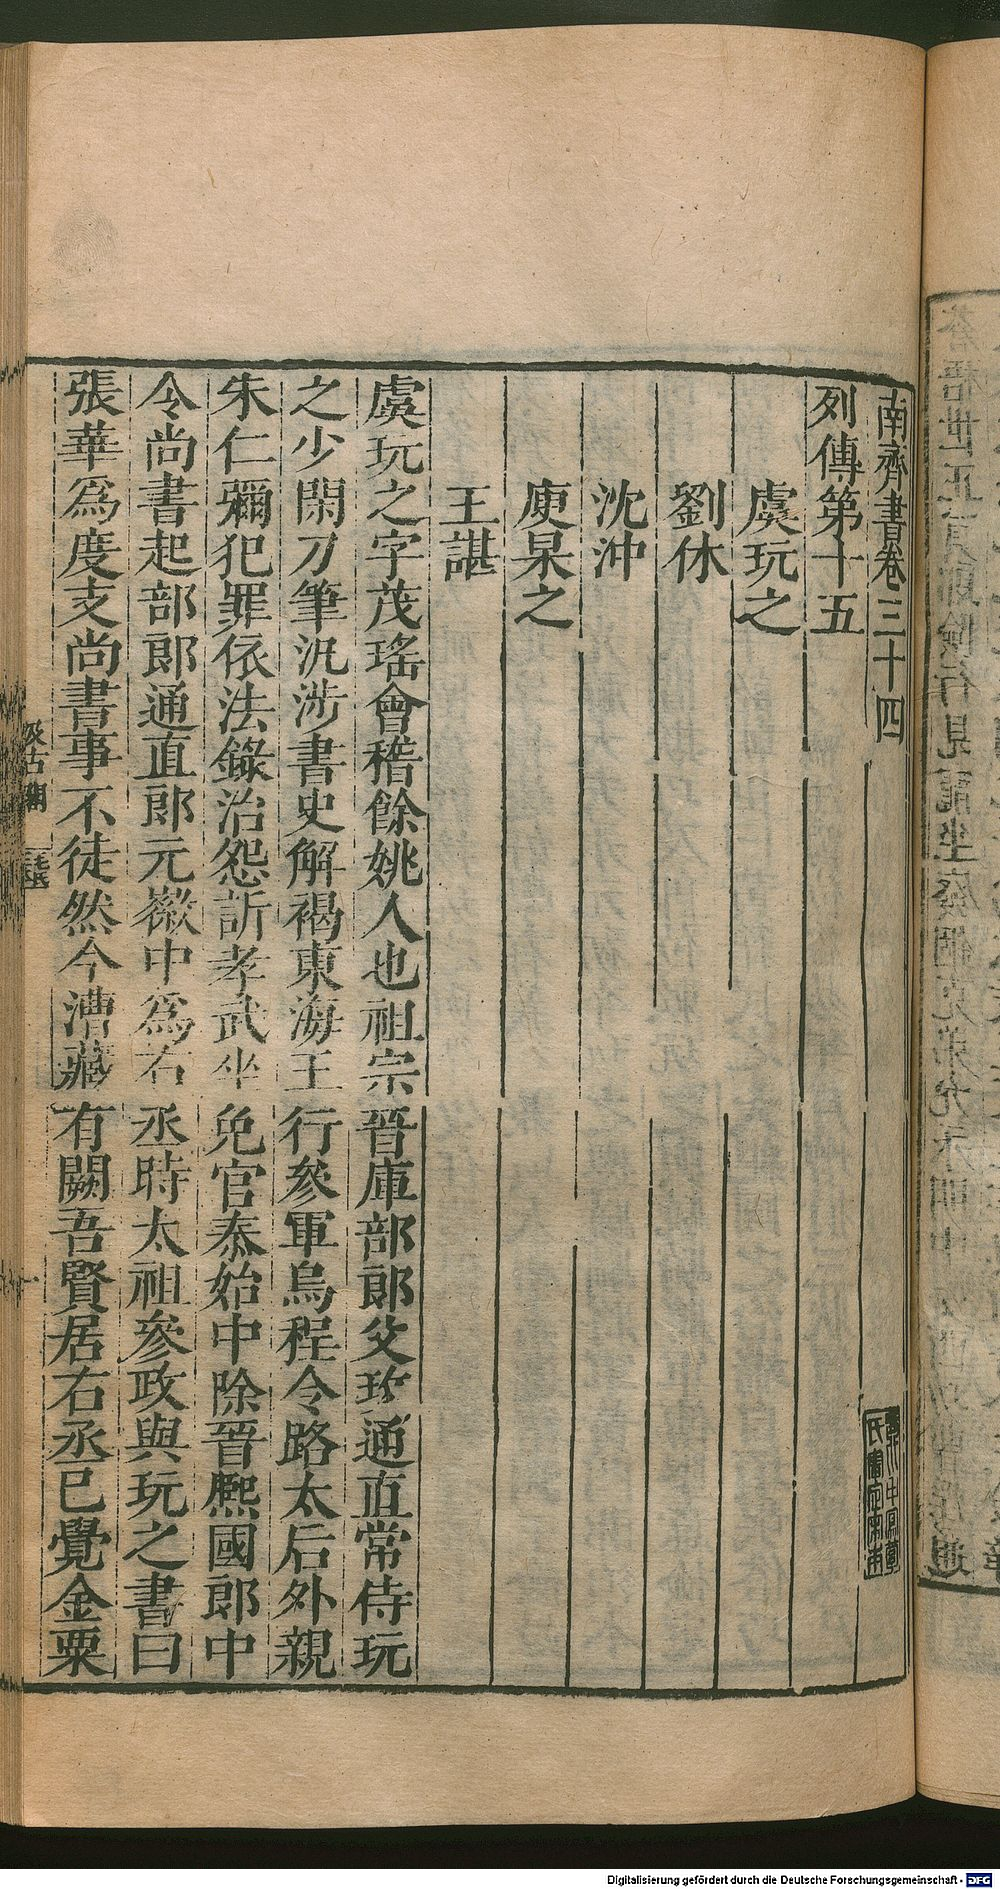 南齊書卷三十四
列傳第十五
虞玩之
劉休
沈沖
庾杲之
王諶
虞玩之字茂瑤會稽餘姚人也祖宗晉庫部郎父玫通直常侍玩
之少閑刀筆汎涉書史解褐東海王行參軍烏程令路太后外親
朱仁彌犯罪依法錄治怨訴孝武坐免官泰始中除晉熙國郎中
令尚書起部郎通直郎元徽中爲右丞時太祖參政與玩之書曰
張華爲度支尚書事不徒然今漕藏有闕吾賢居右丞已覺金粟
汲古閣
Digitalisierung gefördert durch die Deutsche Forschungsgemeinschaft - DFG